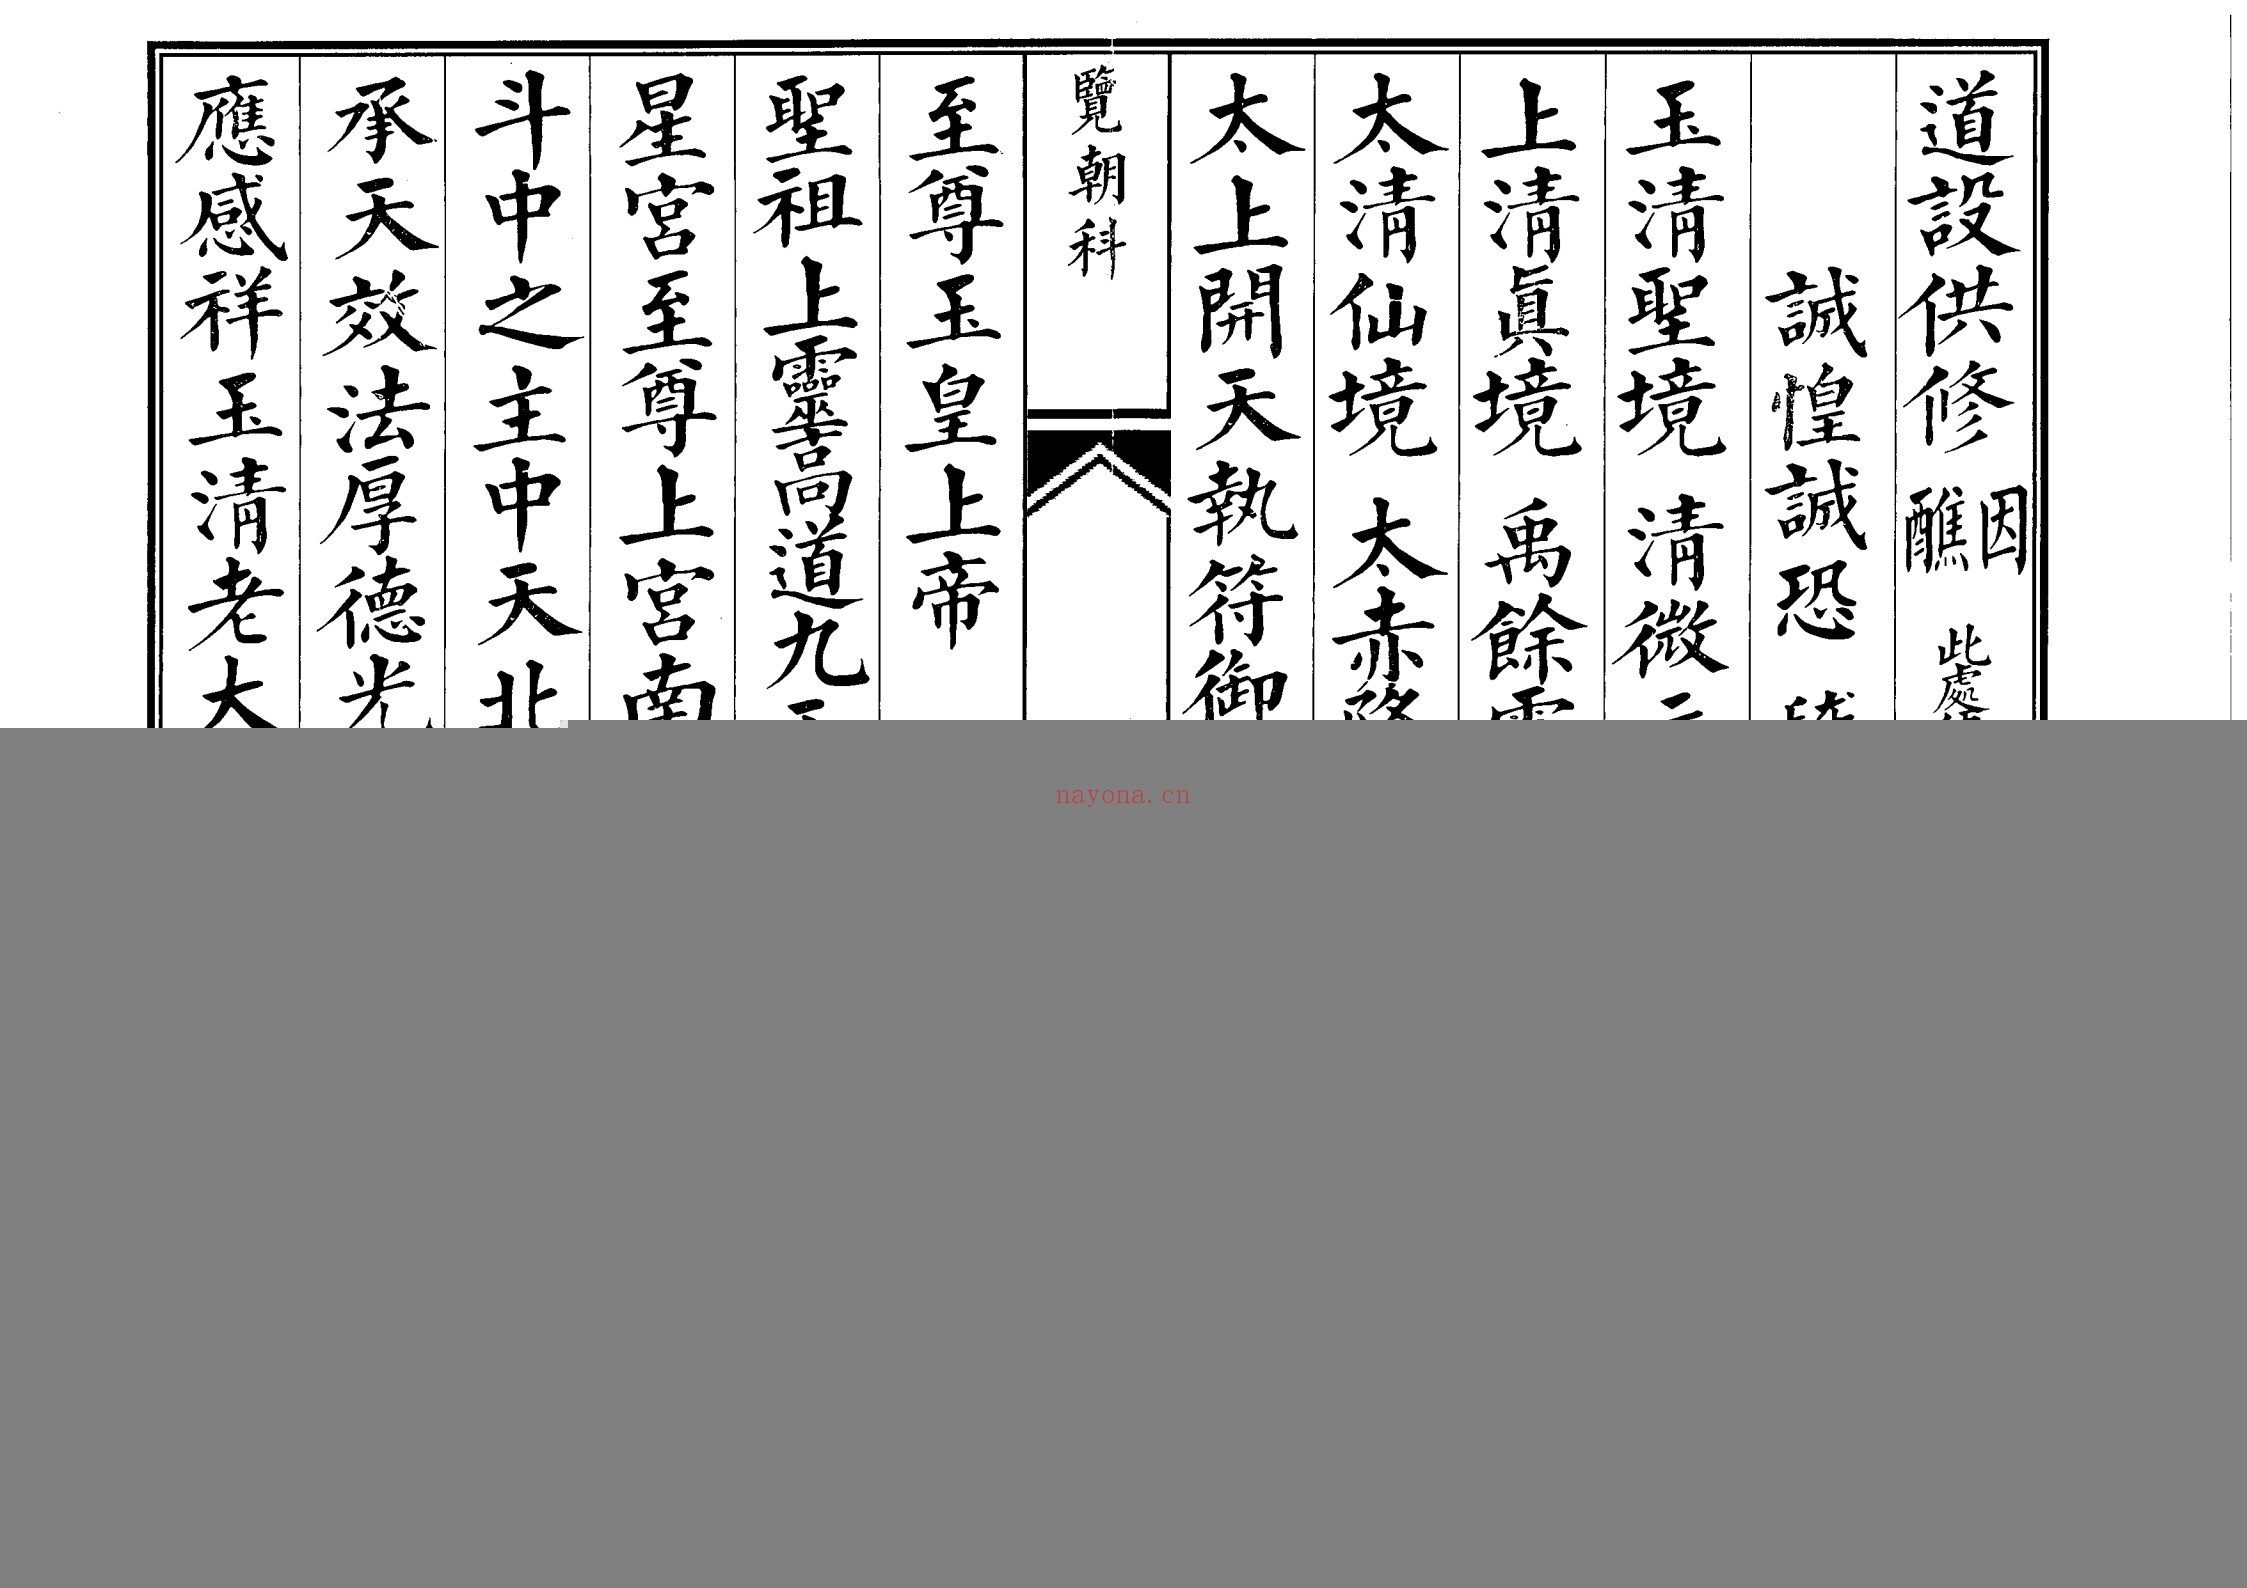 道設供修因醮此處
誠惶誠恐
玉清聖境 清微
上清眞境 禹餘
太清仙境 太赤
太上開天執符御
覽朝科
至尊玉皇上帝
聖祖上靈高道九
星宮至尊上宮南
斗中之主中天北
承天效法厚德光
應感祥玉清老大
nayona.cn